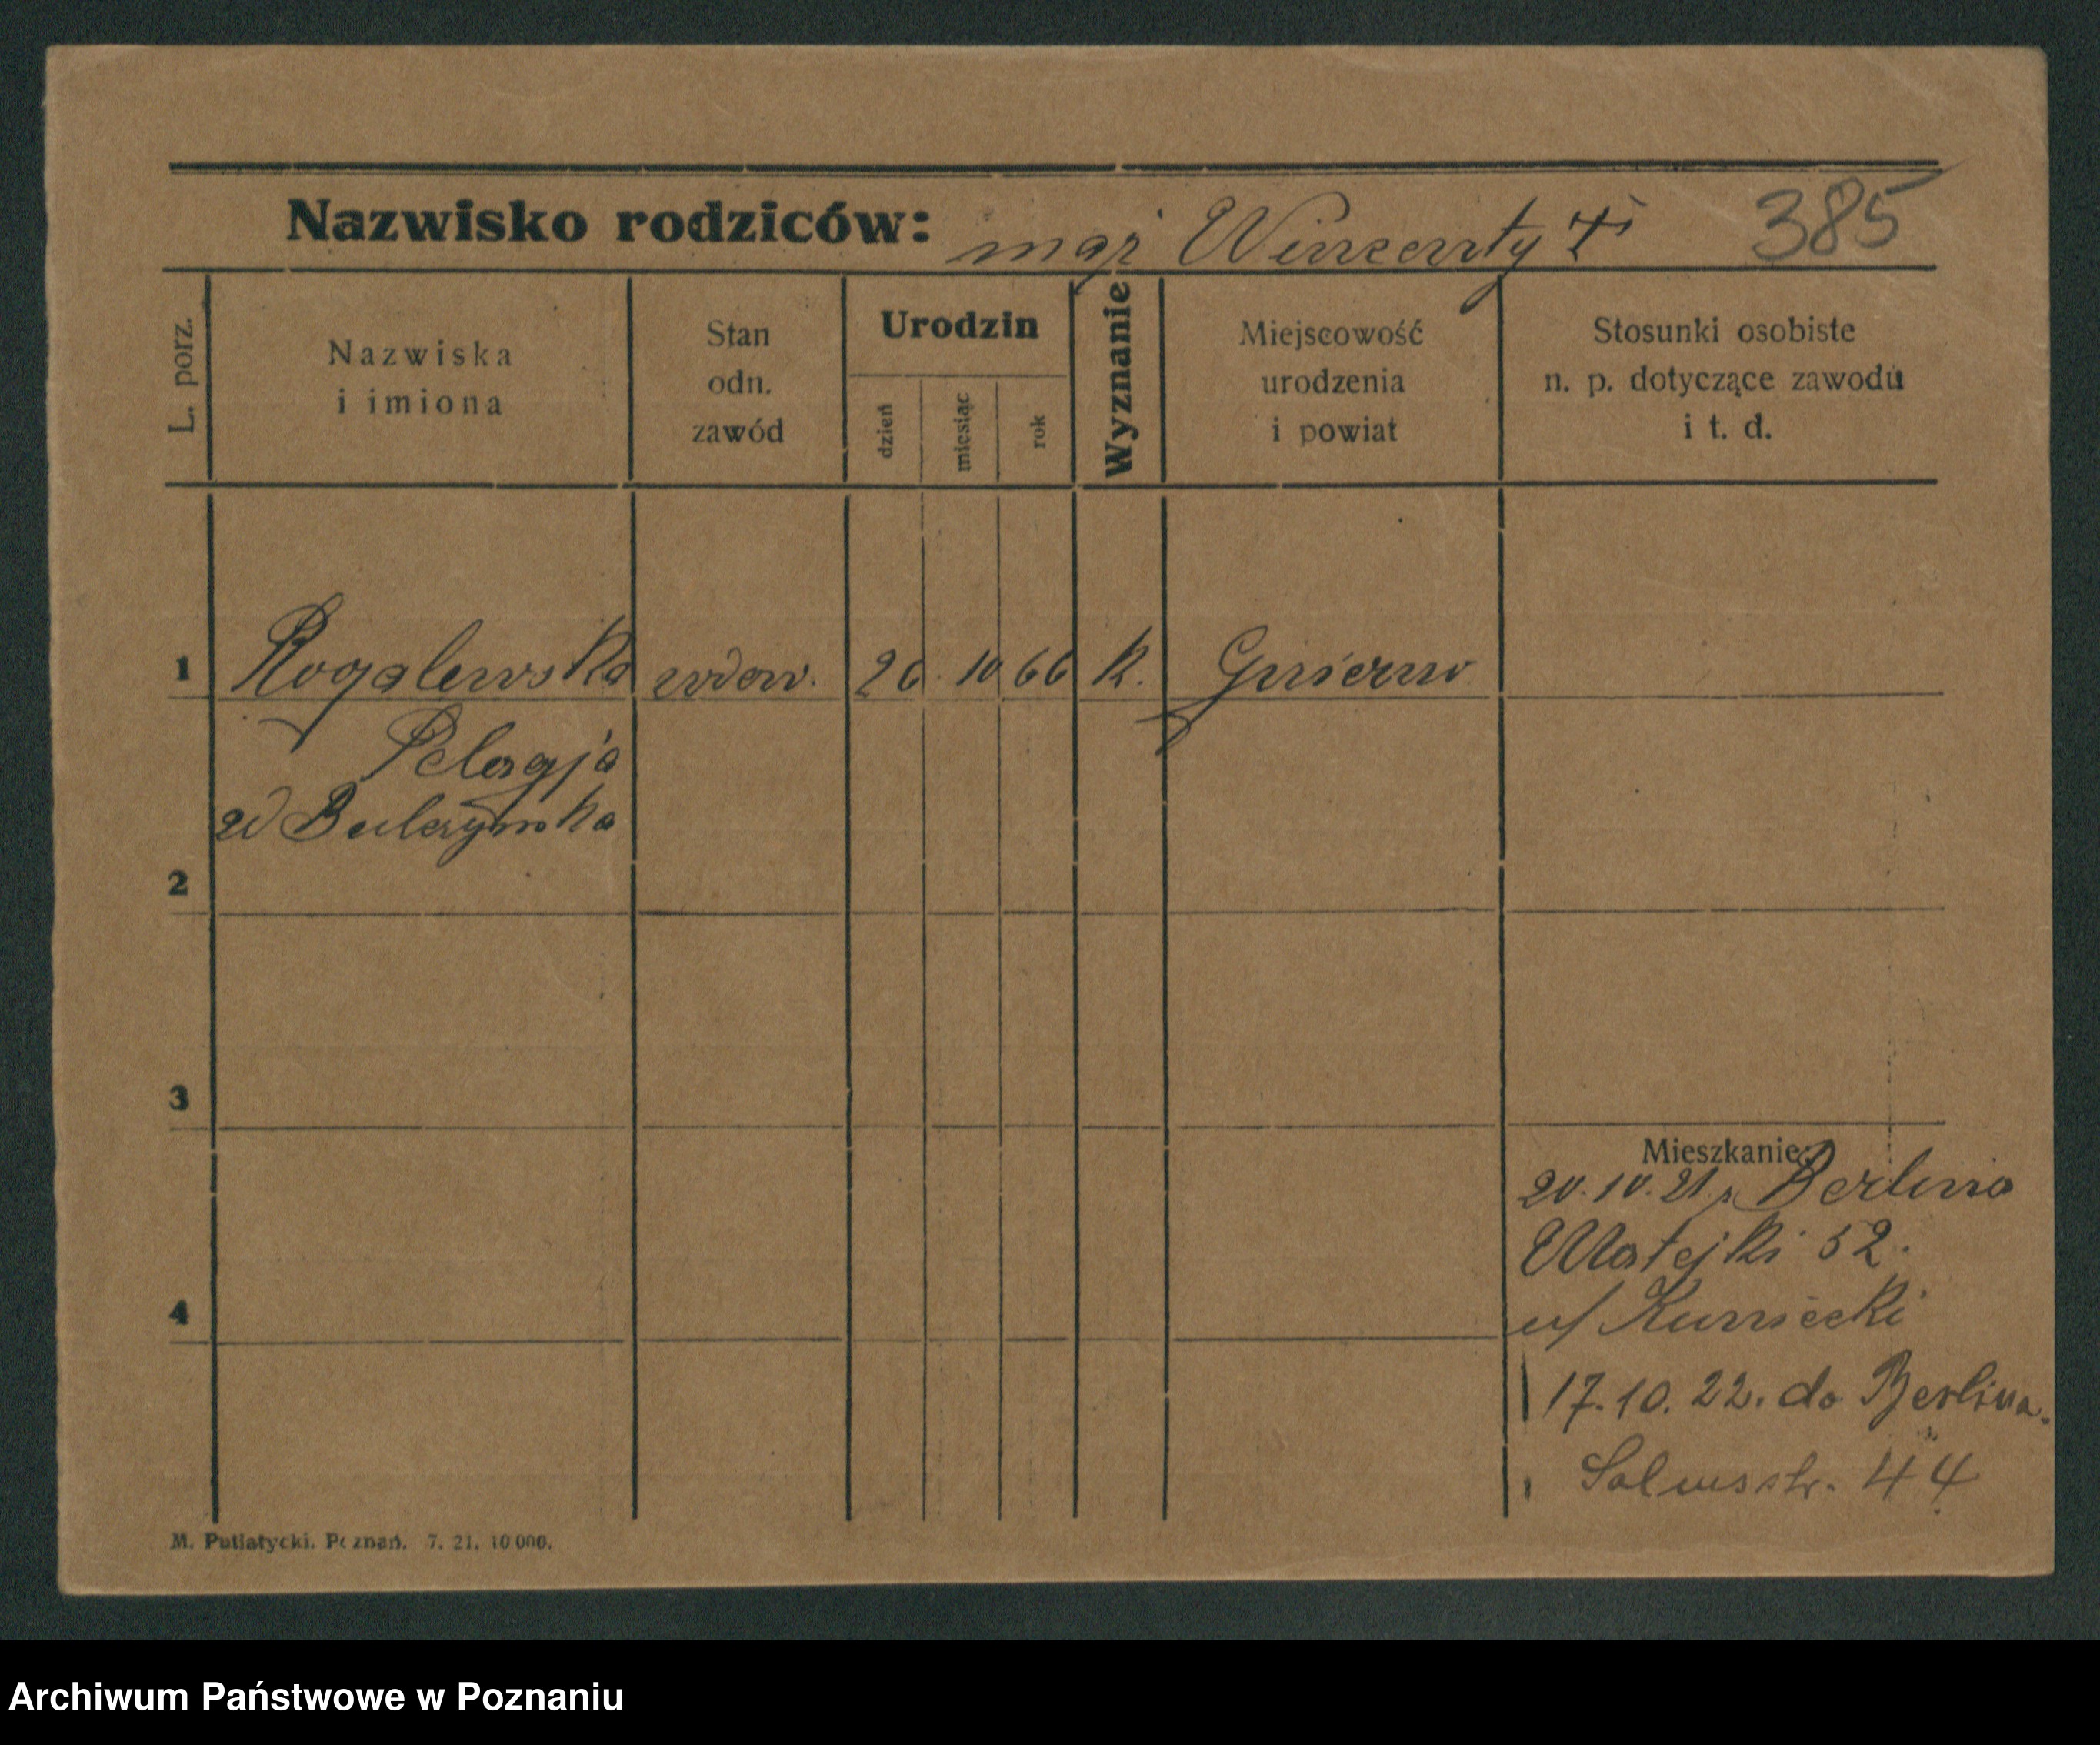 Nazwisko rodziców: mąż Wincenty † 385
L. porz.
Nazwiska
i imiona
Stan
odn.
zawód
Urodzin
dzień
miesiąc
rok
Wyznanie
Miejscowość
urodzenia
i powiat
Stosunki osobiste
n. p. dotyczące zawodu
i t. d.
1 Rogalewska wdow. 26. 10 66 k.
Pelagja
2
3
Mieszkanie:
20.10.21 z Berlina
Matejki 52.
4
u/ Kuniecki
17.10.22. do Berlina.
Solmsstr. 44
M. Putiatycki. Poznań. 7. 21. 10 000.
Archiwum Państwowe w Poznaniu